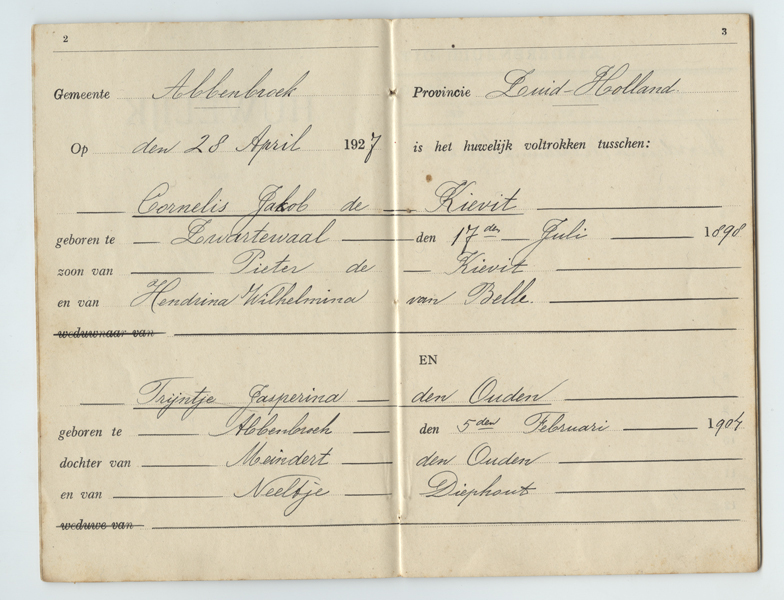 2
3
Gemeente Abbenbroek Provincie Zuid-Holland.
Op den 28 April 1927 is het huwelijk voltrokken tusschen:
Cornelis Jakob de Kievit
geboren te Zwartewaal den 17den Juli 1898
zoon van Pieter de Kievit
en van Hendrina Wilhelmina van Belle.
weduwnaar van
EN
Trijntje Jasperina den Ouden
geboren te Abbenbroek den 5den Februari 1904
dochter van Meindert den Ouden
en van Neeltje Diephout
weduwe van